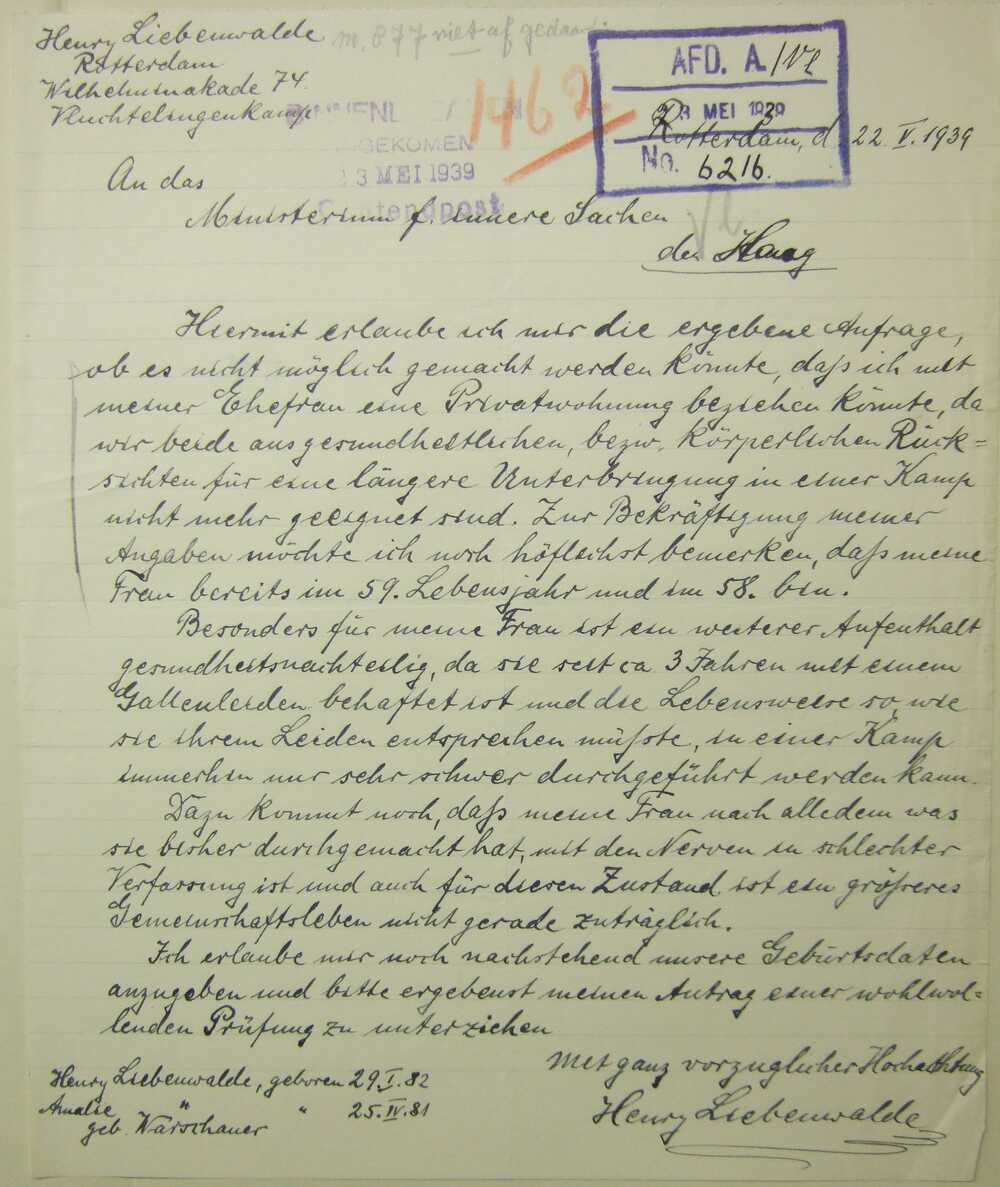 Henry Liebenwalde
Rotterdam
Wilhelminakade 74.
Vluchtelingenkamp
m. 877 niet af gedaan
1462
GEKOMEN
3 MEI 1939
AFD. A./Vl
MEI 1939
No. 6216.
Rotterdam, d. 22. V. 1939
An das
Ministerium f. innere Sachen
den Haag
Hiermit erlaube ich mir die ergebene Anfrage,
ob es nicht möglich gemacht werden könnte, daß ich mit
meiner Ehefrau eine Privatwohnung beziehen könnte, da
wir beide aus gesundheitlichen, bezw. körperlichen Rück=
sichten für eine längere Unterbringung in einer Kamp
nicht mehr geeignet sind. Zur Bekräftigung meiner
Angaben möchte ich noch höflichst bemerken, daß meine
Frau bereits im 59. Lebensjahr und im 58. bin.
Besonders für meine Frau ist ein weiterer Aufenthalt
gesundheitsnachteilig, da sie seit ca 3 Jahren mit einem
Gallenleiden behaftet ist und die Lebensweise so wie
sie ihrem Leiden entsprechen müßte, in einer Kamp
immerhin nur sehr schwer durchgeführt werden kann.
Dazu kommt noch, daß meine Frau nach alledem was
sie bisher durchgemacht hat, mit den Nerven in schlechter
Verfassung ist und auch für diesen Zustand ist ein größeres
Gemeinschaftsleben nicht gerade zuträglich.
Ich erlaube mir noch nachstehend unsere Geburtsdaten
anzugeben und bitte ergebenst meinen Antrag einer wohlwol=
lenden Prüfung zu unterziehen
Mit ganz vorzüglicher Hochachtung
Henry Liebenwalde
Henry Liebenwalde, geboren 29. I. 82
Amalie " " 25. IV. 81
geb. Warschauer